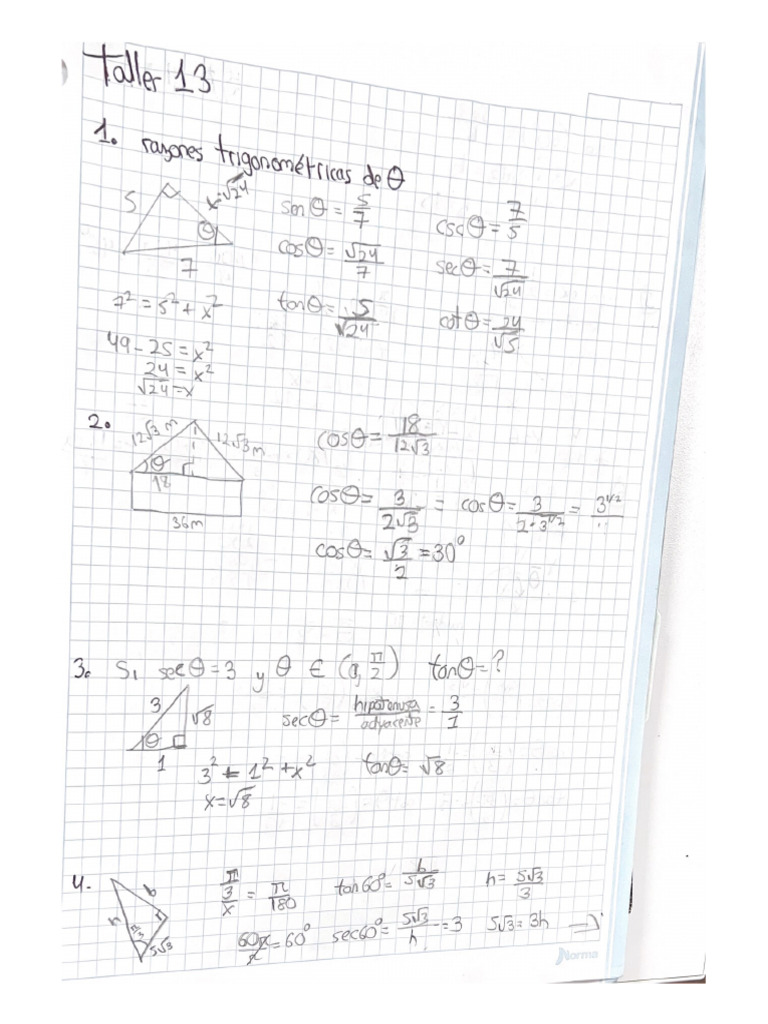 Taller 13
1. razones trigonométricas de θ
5 x=√24 θ 7
senθ = 5/7
cscθ = 7/5
cosθ = √24/7
secθ = 7/√24
tanθ = 5/√24
cotθ = 24/√5
7² = 5² + x²
49 - 25 = x²
24 = x²
√24 = x
2.
12√3 m 12√3 m
θ
18
36m
cosθ = 18/12√3
cosθ = 3/2√3 = cosθ = 3/2·3^1/2 = 3^1/2/..
cosθ = √3/2 = 30°
3. Si secθ = 3 y θ ∈ (0, π/2) tanθ = ?
3 √8 θ 1
secθ = hipotenusa/adyacente = 3/1
3² = 1² + x²
tanθ = √8
x = √8
4.
b h π/3 5√3
π/3/x = π/180
tan60° = b/5√3
h = 5√3/3
60π/π = 60°
sec60° = 5√3/h = 3
5√3 = 3h →
Norma